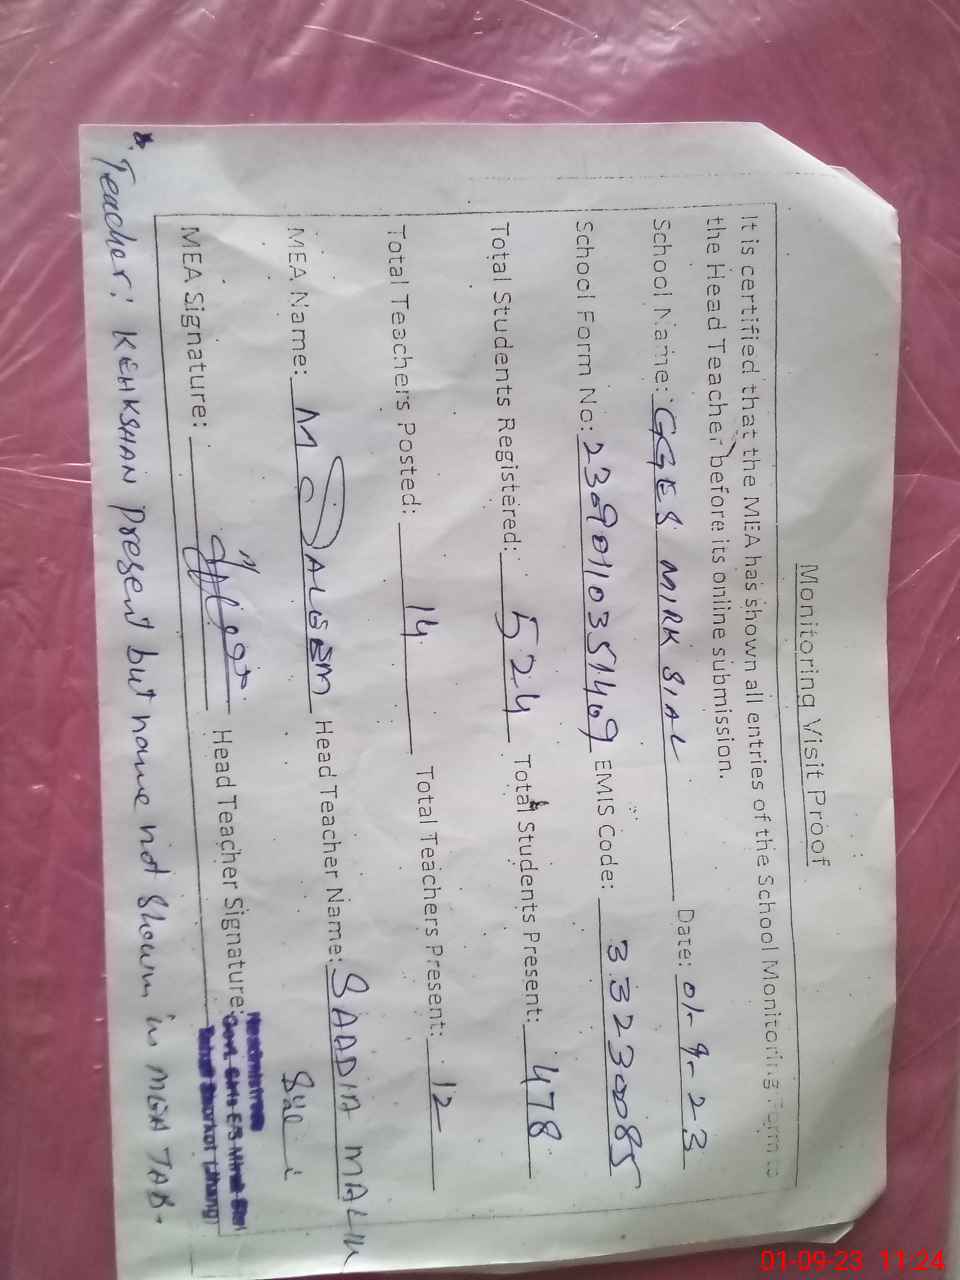 Monitoring Visit Proof
It is certified that the MEA has shown all entries of the School Monitoring Form to
the Head Teacher before its online submission.
School Name: GGES MIRK SIAL Date: 01-9-23
School Form No: 23090110351469 EMIS Code: 33230085
Total Students Registered: 524 Total Students Present: 478
Total Teachers Posted: 14 Total Teachers Present: 12
MEA Name: M SALEEM Head Teacher Name: SAADIA MALIK
MEA Signature: Head Teacher Signature:
Headmistress
Govt. Girls E/S Mirak Sial
Tehsil Shorkot (Jhang)
* Teacher: KEHKSHAN present but name not shown in MEA TAB.
01-09-23 11:24